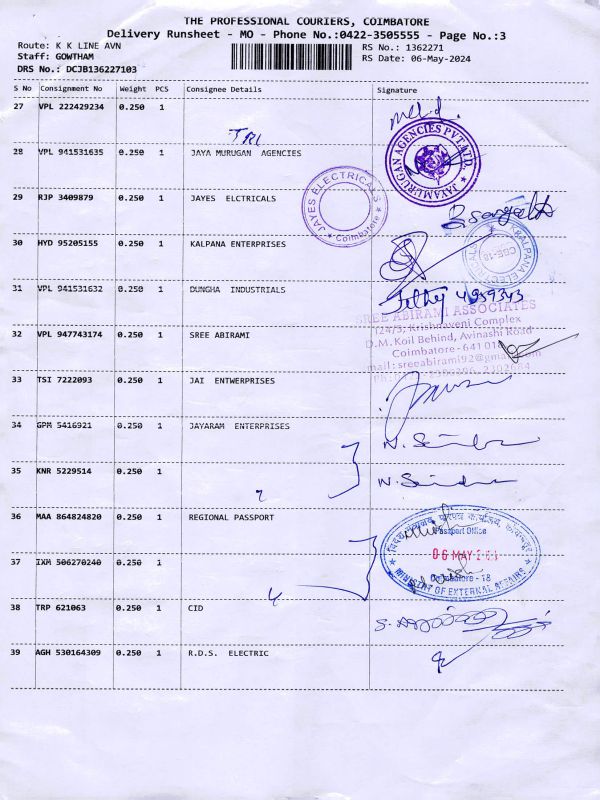 THE PROFESSIONAL COURIERS, COIMBATORE
Delivery Runsheet - MO - Phone No.:0422-3505555 - Page No.:3
Route: K K LINE AVN
RS No.: 1362271
Staff: GOWTHAM
RS Date: 06-May-2024
DRS No.: DCJB136227103
S No Consignment No Weight PCS Consignee Details Signature
27 VPL 222429234 0.250 1
28 VPL 941531635 0.250 1 JAYA MURUGAN AGENCIES
JAYAMURUGAN AGENCIES PVT.LTD.
29 RJP 3409879 0.250 1 JAYES ELCTRICALS
JAYES ELECTRICALS
Coimbatore
30 HYD 95205155 0.250 1 KALPANA ENTERPRISES
KALPANA ELECTRICAL
CBE-18
31 VPL 941531632 0.250 1 DUNGHA INDUSTRIALS
32 VPL 947743174 0.250 1 SREE ABIRAMI
SREE ABIRAMI ASSOCIATES
124/3, Krishnaveni Complex
D.M. Koil Behind, Avinashi Road
Coimbatore - 641 018
mail: sreeabirami92@gmail.com
33 TSI 7222093 0.250 1 JAI ENTWERPRISES
34 GPM 5416921 0.250 1 JAYARAM ENTERPRISES
35 KNR 5229514 0.250 1
36 MAA 864824820 0.250 1 REGIONAL PASSPORT
Passport Office
06 MAY
Coimbatore - 18
MINISTRY OF EXTERNAL AFFAIRS
37 IXM 506270240 0.250 1
38 TRP 621063 0.250 1 CID
39 AGH 530164309 0.250 1 R.D.S. ELECTRIC